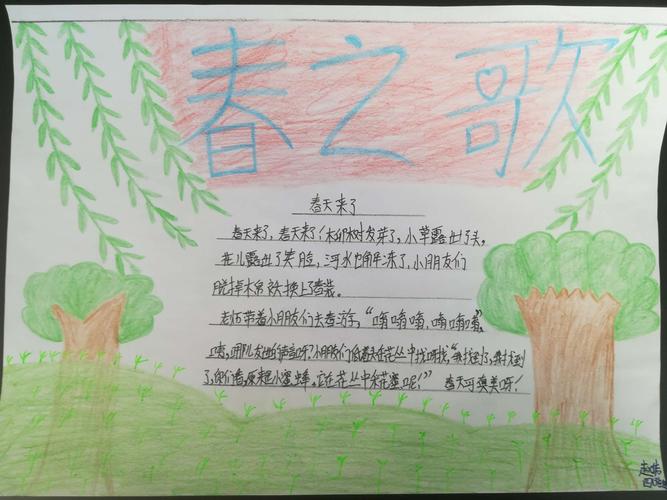 春之歌
春天来了
春天来了,春天来了!柳树发芽了,小草露出了头。
花儿露出了笑脸,河水也解冻了,小朋友们
脱掉棉袄换上了春装。
老师带着小朋友们去春游,“嗡嗡嗡,嗡嗡嗡”
咦,哪儿发出的声音呀?小朋友们低着头在花丛中找呀找,“我找到了,我找到
了,你们看原来是小蜜蜂。它在花丛中采花蜜呢!” 春天可真美呀!